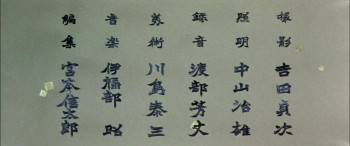 撮影 吉田貞次
照明 中山治雄
録音 渡部芳丈
美術 川島泰三
音楽 伊福部昭
編集 宮本信太郎